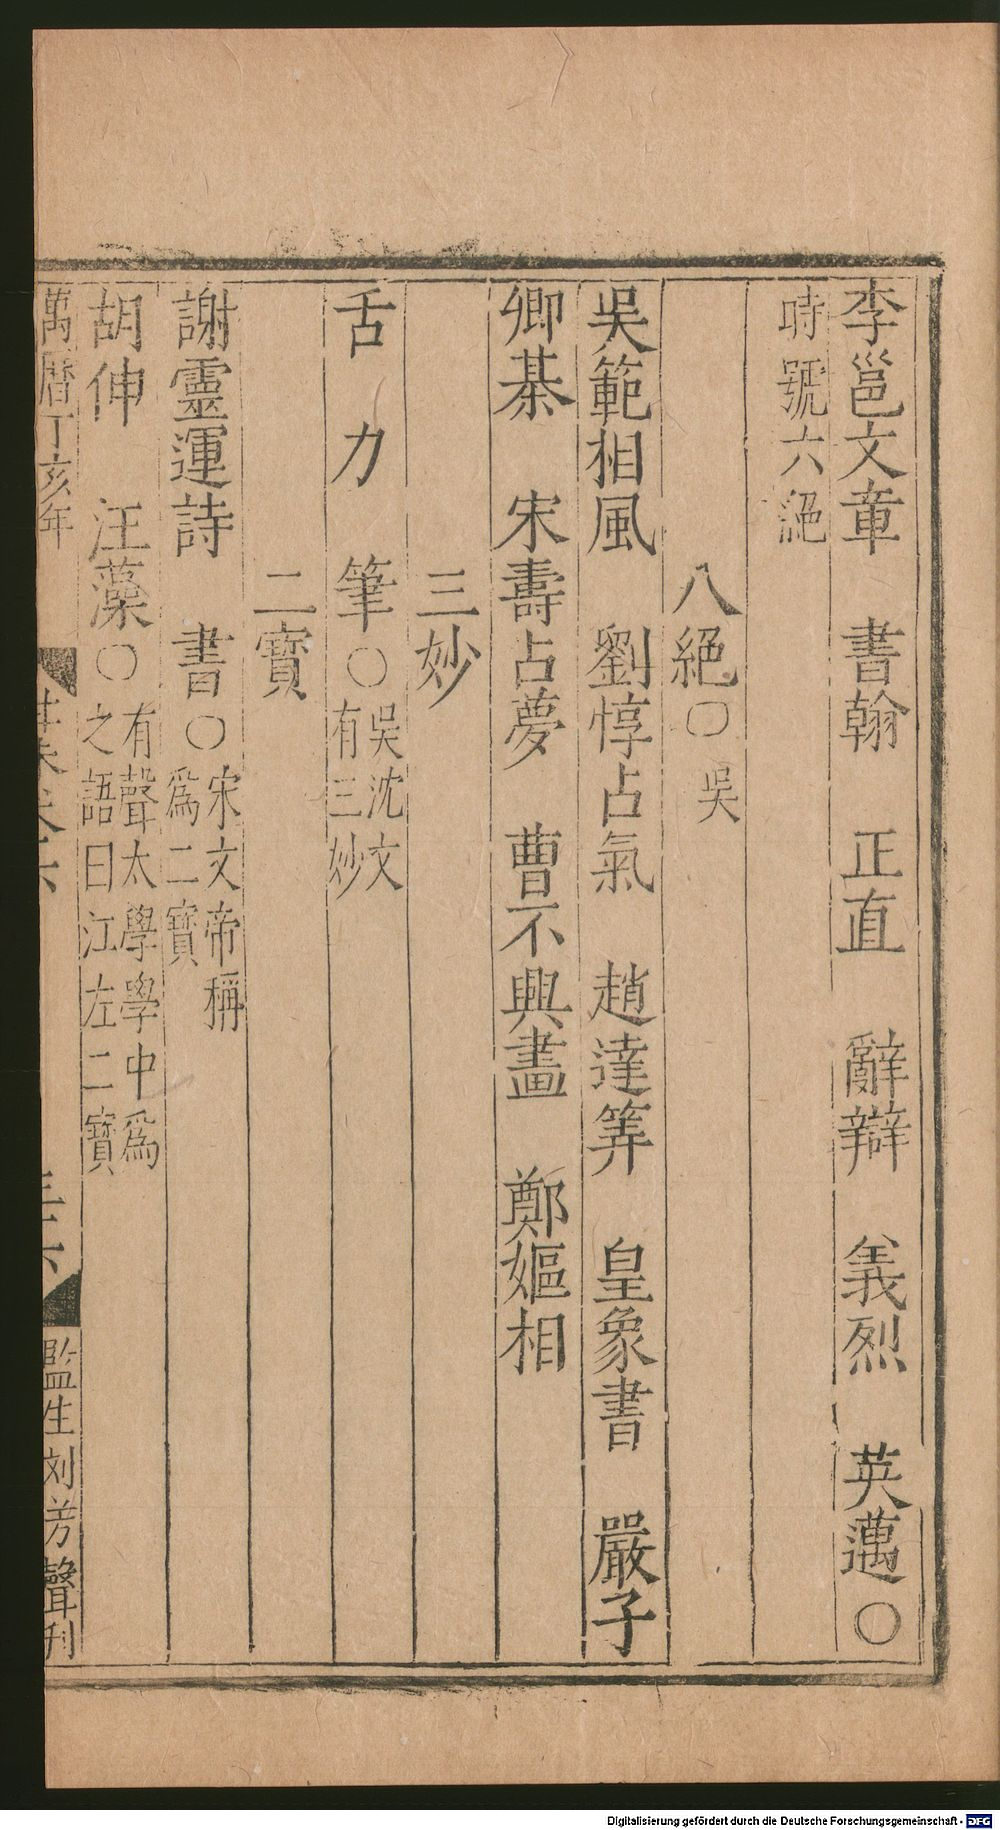 李邕文章　書翰　正直　辭辯　義烈　英邁〇
時號六絕
八絕〇吳
吳範相風　劉惇占氣　趙達筭　皇象書　嚴子
卿棊　宋壽占夢　曹不興畫　鄭嫗相
三妙
舌　力　筆〇吳沈文
有三妙
二寶
謝靈運詩　書〇宋文帝稱
爲二寶
胡伸　汪藻〇有聲太學學中爲
之語曰江左二寶
萬曆丁亥年
監生刘芳聲刊
Digitalisierung gefördert durch die Deutsche Forschungsgemeinschaft - DFG